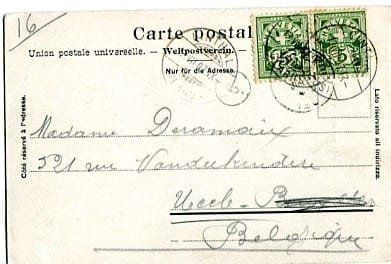 16
Carte postal
Union postale universelle. — Weltpostverein.
Nur für die Adresse.
Côté réservé à l'adresse.
Lato riservato all indirizzo.
Madame Deramaix
521 rue Vanderkindere
Uccle
Belgique